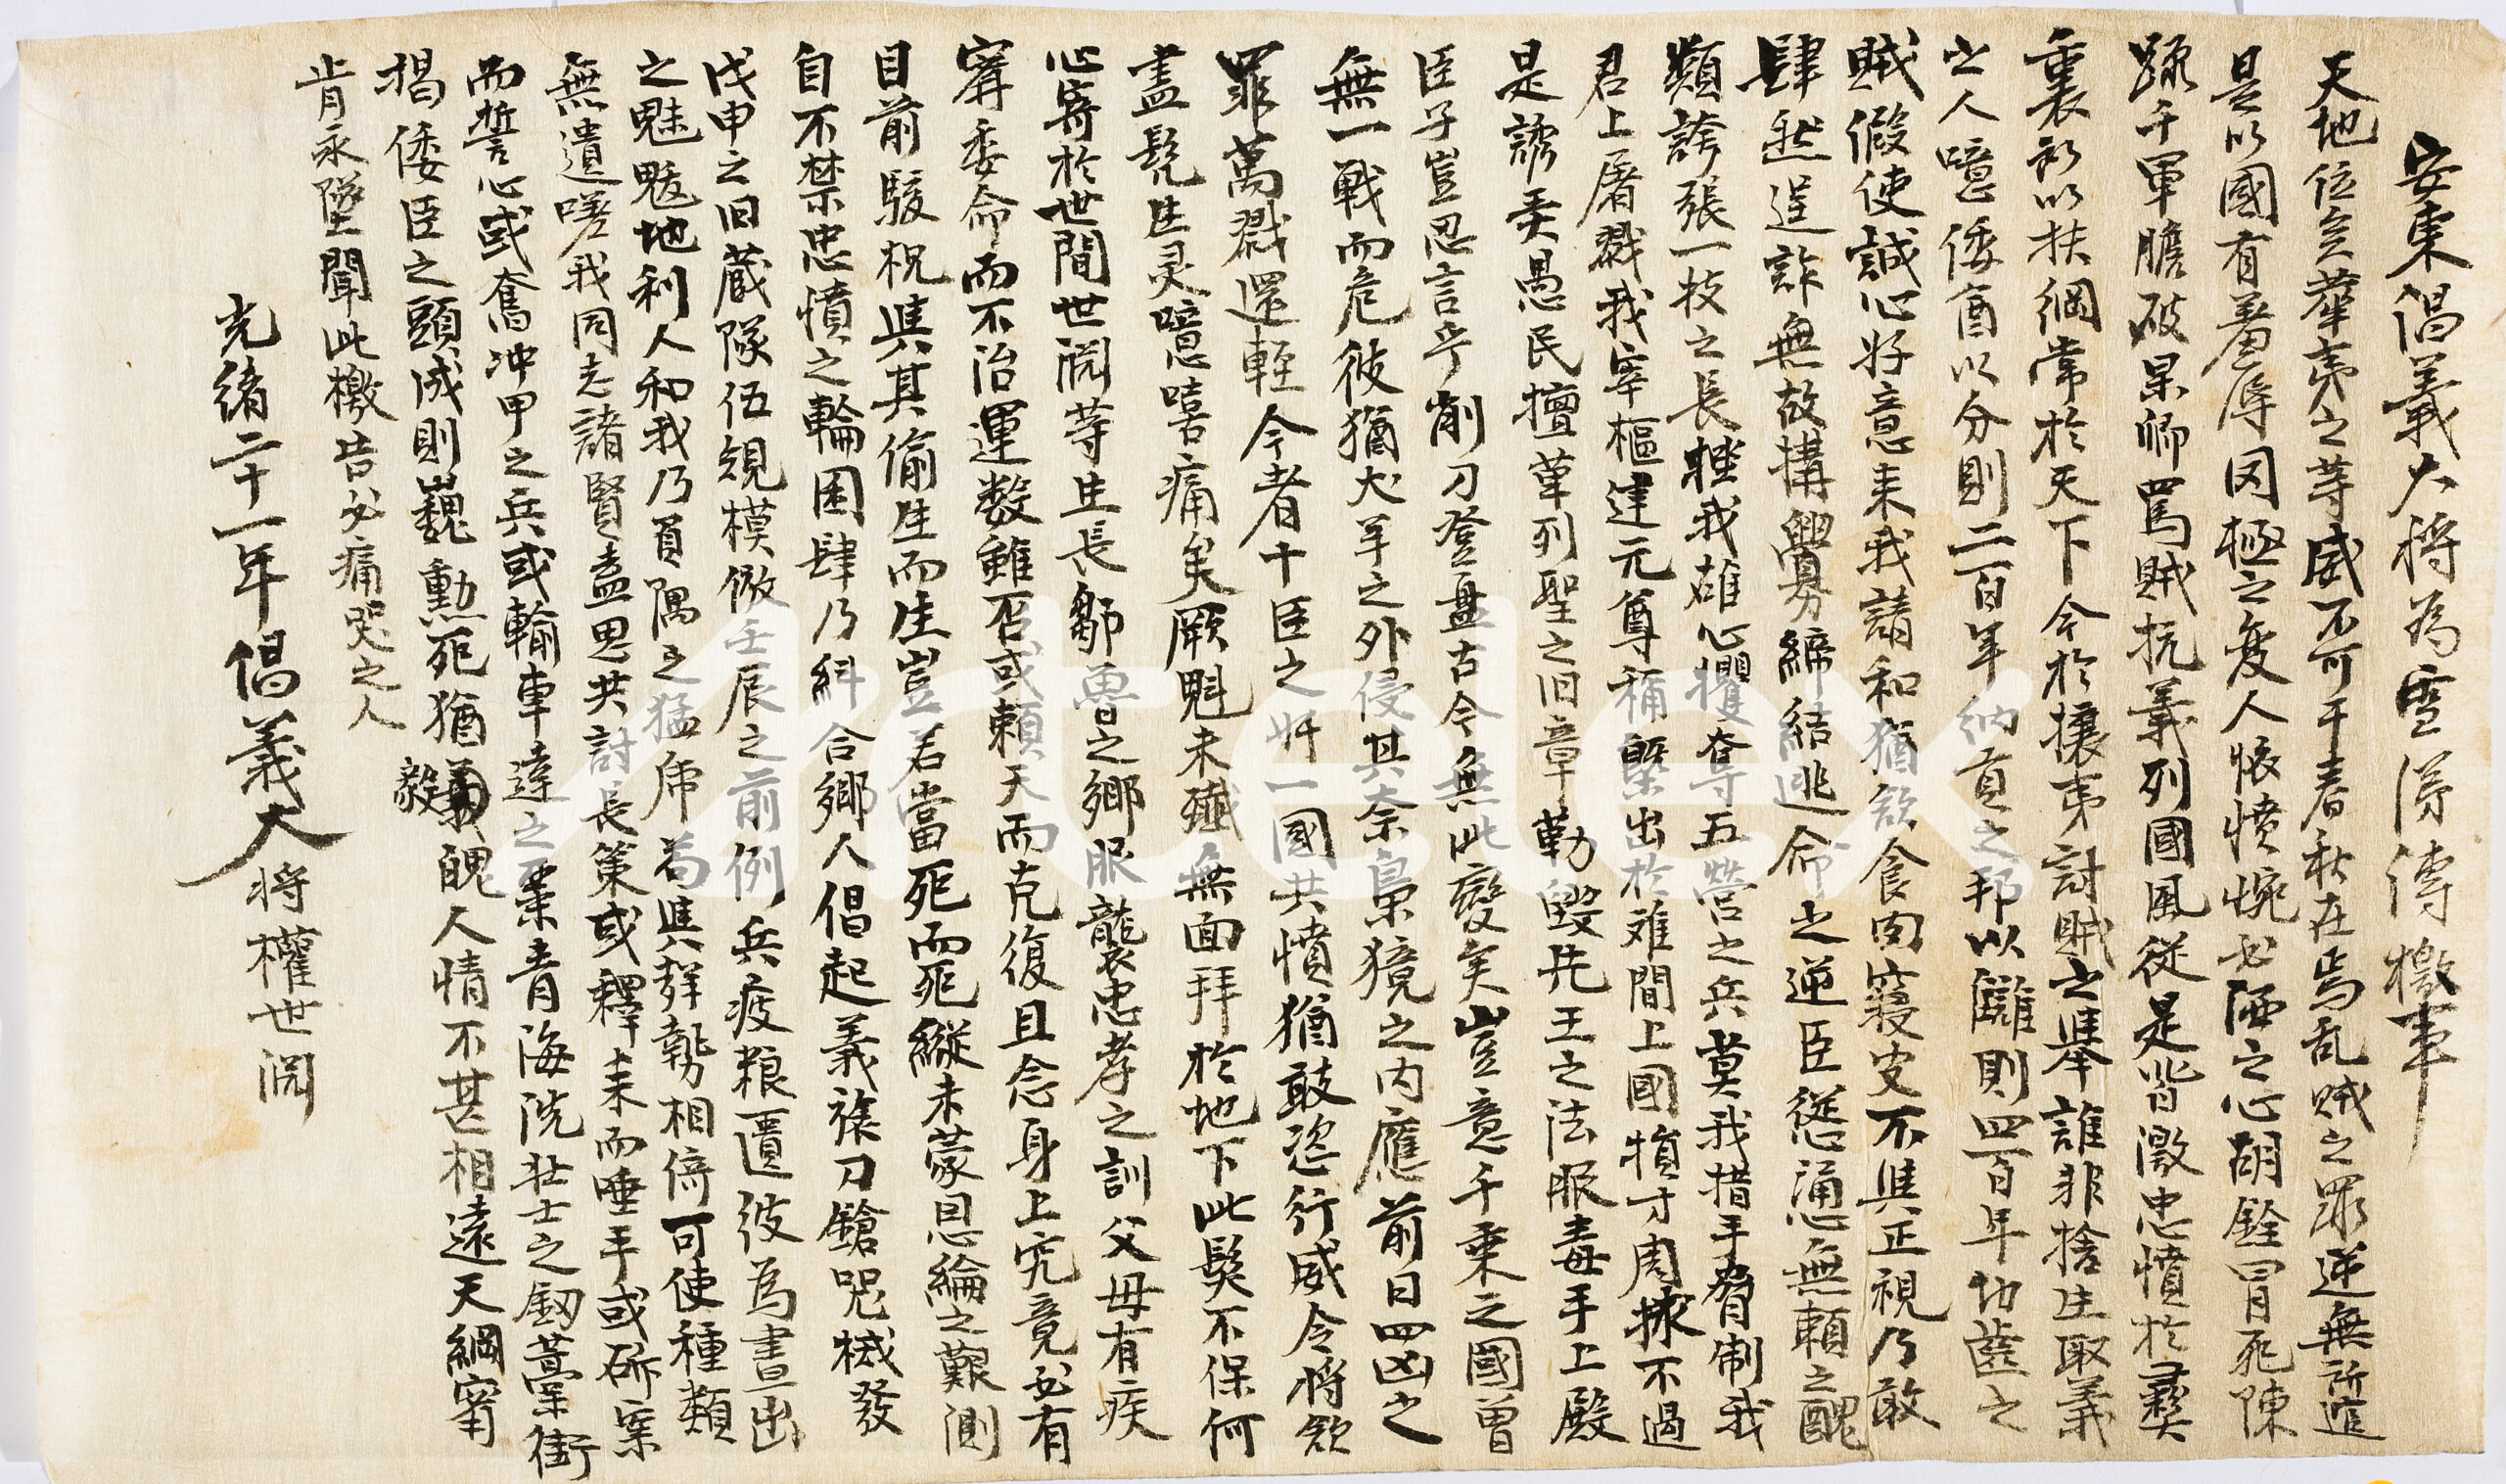 安東倡義大將為雪涕傳檄事
天地位矣華夷之等威不可干春秋在焉乱賊之罪逆無所逃
是以國有羞辱罔極之変人懷憤惋必洒之心胡銓冒死陳
疏千軍膽破杲卿罵賊抗義列國風從是皆激忠憤於彛
衷秉以扶綱常於天下今於攘夷討賊之擧誰非捨生取義
之人噫倭酋以分則二百年納貢之邦以讎則四百年切齒之
賊假使誠心好意来我請和猶欲食肉寢皮不與正視乃敢
肆然逞詐無故搆釁締結逃命之逆臣慫湧無賴之醜
類誇張一技之長輕我雄心攫奪五營之兵莫我措手脅制我
君上屠戮我宰樞建元尊稱槩出於难間上國犢寸周掾不過
是謗柔愚民擅革列聖之旧章勒毁先王之法服毒手上殿
臣子豈忍言乎削刀登盈古今無此變矣豈意千乗之國曽
無一戰而危彼猶犬羊之外侵其奈梟獍之内應前日四凶之
罪萬戮還輕今者十臣之奸一國共憤猶敢恣行威令將欲
盡髡生灵噫嘻痛矣厥魁未殲無面拜於地下此髮不保何
心寄於世間世淵等生長鄒魯之鄉服襲忠孝之訓父毋有疾
寗委命而不治運数雖否或頼天而克復且念身上究竟必有
目前駭柷與其偷生而生豈若當死而死縱未蒙恩綸之艱測
自不禁忠憤之輪囷肆乃糾合鄉人倡起義旅刀鎗咒械發
戊申之旧藏隊伍規模倣壬辰之前例兵疲粮匱彼為晝出
之魅魃地利人和我乃負隅之猛虎苟與群勢相倚可使種類
無遺嗟我同志諸賢盍思共討長策或釋耒而唾手或斫案
而誓心或奮冲甲之兵或輸車達之粟青海洗壮士之釰藁街
揭倭臣之頭成則巍勳死猶毅魄人情不甚相遠天綱寗
肯永墜聞此檄告必痛哭之人
光緒二十一年倡義大將權世淵